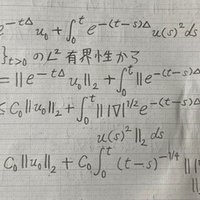 e^{-tΔ} u_0 + ∫_0^t e^{-(t-s)Δ} u(s)^2 ds
}_{t>0} の L^2 有界性から
= ‖e^{-tΔ} u_0‖_2 + ∫_0^t ‖e^{-(t-s)Δ}
≤ C_0 ‖u_0‖_2 + ∫_0^t ‖|∇|^{1/2} e^{-(t-s)Δ}
u(s)^2‖_2 ds
C_0 ‖u_0‖_2 + C_0 ∫_0^t (t-s)^{-1/4} ‖|